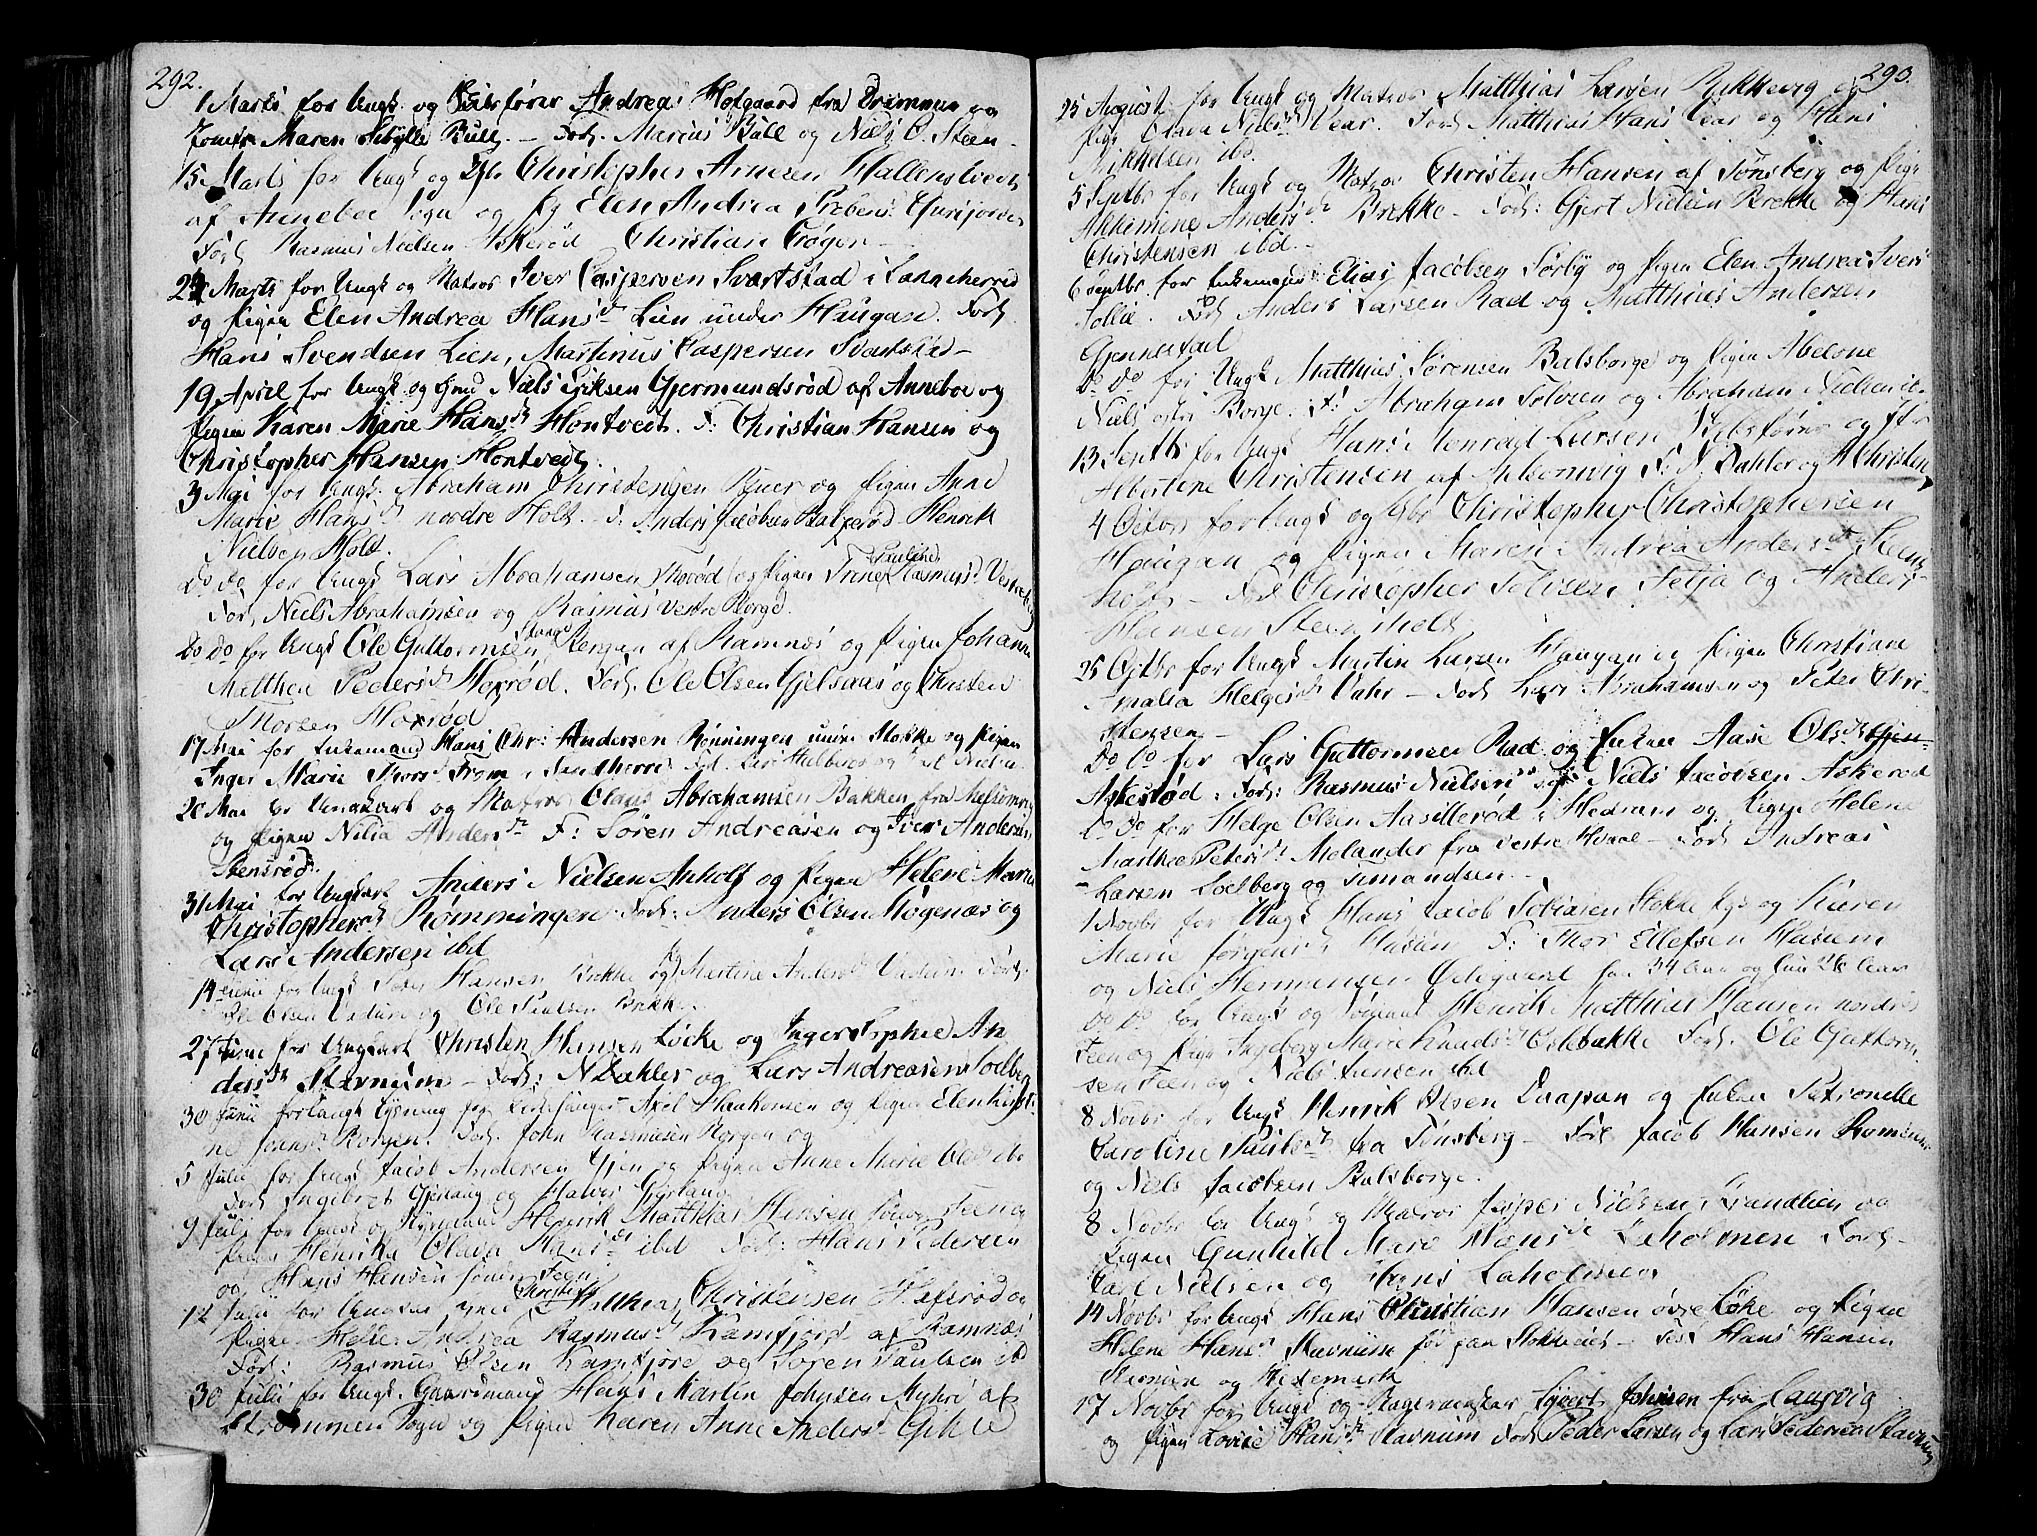 292.
1 Marts for Ungk. og Skibsfører Andreas Hofgaard fra Drammen og
Jomfr Maren Sibylle Bull. – Forl. Marius Bull og Niels O. Steen –
15 Marts for Ungk og Christopher Arnesen Hallenstvedt
af Anneboe Sogn og Elen Andrea Prebens
Forl. Rasmus Nielsen Askerød Christian Trøger –
24 Marts for Ungk og Matros Iver Caspersen Svartstad i Laurherred
og Pigen Elen Andrea Hansdr Lien under Haugan. Forl.
Hans Svendsen Lien, Martinus Caspersen Svartstad –
19 April for Ungk og Gmd Niels Eriksen Gjermundsrød af Anneboe og
Pigen Karen Marie Hansdr Hontvedt. F: Christian Hansen og
Christopher Hansen Hontvedt.
3 Mai for Ungk. Abraham Christensen Ruer og Pigen Anne
Marie Hansdr nordre Holt. – F: Anders Jacobsen Holt Henrik
Nielsen Holt.
Do Do for Ungk Lars Abrahamsen og Pigen Trine Pauline Rasmusd. Vestre
Forl. Niels Abrahamsen og Rasmus vestre Borge.
Do Do for Ungk Ole Guttormsen Bergan af Ramnæs og Pigen Johanne
Matthea Pedersdr Horrød. Forl. Ole Olsen Gjelsaas og Christen
Thorsen Horrød
17 Mai for Enkemand Hans Chr: Andersen Rønningen under Stokke og Pigen
Inger Marie Thorsd From i Sandherred Forl. Lars Hallberg og Nielsen
20 Mai for Ungkarl og Matros Claus Abrahamsen Bakken fra Melsomvig
og Pigen Nilia Andersdr F: Søren Andreasen og Iver Andersen
Stensrød.
31 Mai for Ungkarl Anders Nielsen Anholt og Pigen Helene Marie
Christophersdr Rømmingen Forl: Anders Olsen Møgenæs og
Lars Andersen ibd
14 Junii for Ungk Hansen Brekke og Martine Andersd Forl.
Ole Olsen og Ole Paulsen Brekke.
27 Juni for Ungkarl Christen Hansen Løcke og Inger Sophie An
dersdr Stavnum – Forl: N Dahler og Lars Andreasen Solberg
30 Junii forlangt Lysning for Axel Haakonsen og Pigen Elen Kirsti
ne Jensd. Borgen. Forl. John Rasmusen Borgen og
5 Julii for Ungk Jacob Andersen Gjen og Pigen Anne Marie Olsd ibd
Forl. Ingebret Gjenaug og
9 Julii for Ungk og Styrmand Henrik Matthias Hansen søndre Feen og
Pigen Henrika Olava Hansdr ibd Forl: Hans Pedersen
og Hans Hansen søndre Feen
12 Julii for Ungkarl Gmd Christen Matthias Christensen og
Pigen Helle Andrea Rasmusdr Kamfjord af Ramnæs
Forl: Rasmus Olsen Kamfjord og Søren Paulsen ibd
30 Julii for Ungk. Gaardmand Hans Martin Johnsen Myhre af
Strømmen Sogn og Pigen Karen Anne Andersd
293.
25 August for Ungk og Matros Matthias Larsen Rekkevig og
Pige Olava Nielsd Vear. Forl: Matthias Hans Vear og Hans
Mikkelsen ibd.
5 Septbr for Ungk og Matros Christen Hansen af Tønsberg og Pige
Andersdr Brekke – Forl: Gjert Nielsen Brekke og Hans
Christensen ibd. –
6 Septbr for Enkemand Elias Jacobsen Sørby og Pigen Elen Andrea Ivers
Sollie. Forl. Anders Larsen Rad og Matthias Andersen
Gjennestad
Do Do for Ungk Matthias Sørensen Balsborge og Pigen Abelone
Nielsd østre Borge. F: Abraham Tolvsen og Abraham Nielsen ib.
13 Septbr for Ungk Hans Monrad Larsen Skibsfører og Jfr
Albertine Christensen af Melsomvig F: N. Dahler og A Christensen
4 Octbr for Ungk og Christopher Christophersen
Haugan og Pigen Maren Andrea Andersdr Steens
holt – Forl Christopher Tolvsen Fetja og Anders
Hansen Steensholt
25 Octbr for Ungk Martin Larsen Haugan og Pigen Christiane
Amalia Helgesdr Vahr – Forl Lars Abrahamsen og Peter Chri
stensen –
Do Do for Lars Guttormsen Rad og Enken Aase Olsdr Gjen
Askerød. Forl: Rasmus Nielsen og Niels Jacobsen Askerød
Do Do for Helge Olsen Aasillerød i Hedrum og Pigen Helene
Marthea Petersdr Melander fra vestre Hvaal – Forl Andreas
Larsen Soelberg og Simandsen. –
1 Novbr for Ungk Hans Jacob Tobiasen Stokke og Karen
Marie Jørgensd Husum F: Thor Ellefsen Husum
og Niels Hermansen Ødegaard han 34 Aar og hun 26 Aar
Do Do for Ungk og Sømand Henrik Matthias Hansen nordre
Feen og Pige Ingeborg Marie Knudsd Oslebakke Forl. Ole Guttorm
sen Feen og Niels Jensen ibd
8 Novbr for Ungk Henrik Olsen Daapan og Enken Petronelle
Caroline Paulsdr fra Tønsberg – Forl Jacob Hansen
og Niels Jacobsen Balsborge.
8 Novbr for Ungk og Matros Jesper Nielsen Grandlien og
Pigen Gunhild Mare Hansd Laholmen Forl. –
Carl Nielsen og Hans Laholmen
14 Novbr for Ungk Hans Christian Hansen øvre Løke og Pigen
Helene Hansd Stavnum før paa Stokke – Forl Hans Hansen
Stavnum og Hedemark
17 Novbr for Ungk og Bagermester Syvert Johnsen fra Laurvig
og Pigen Lovise Hansdr Stavnum Forl Peder Larsen og Lars Pedersen Stavnum